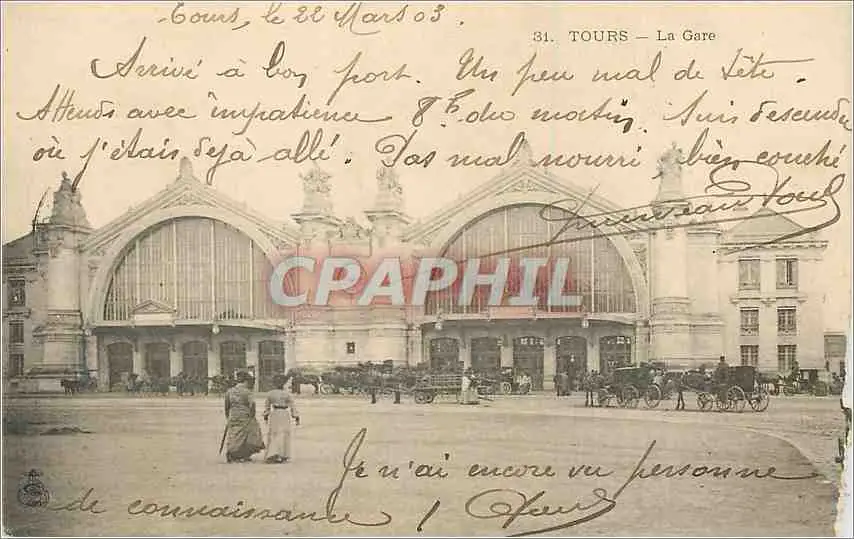 Tours, le 22 Mars 03.
31. TOURS — La Gare
Arrivé à bon port. Un peu mal de tête.
Attends avec impatience 8h. du matin. Suis descendu
où j'étais déjà allé. Pas mal nourri bien couché
CPAPHIL
Je n'ai encore vu personne
de connaissance!